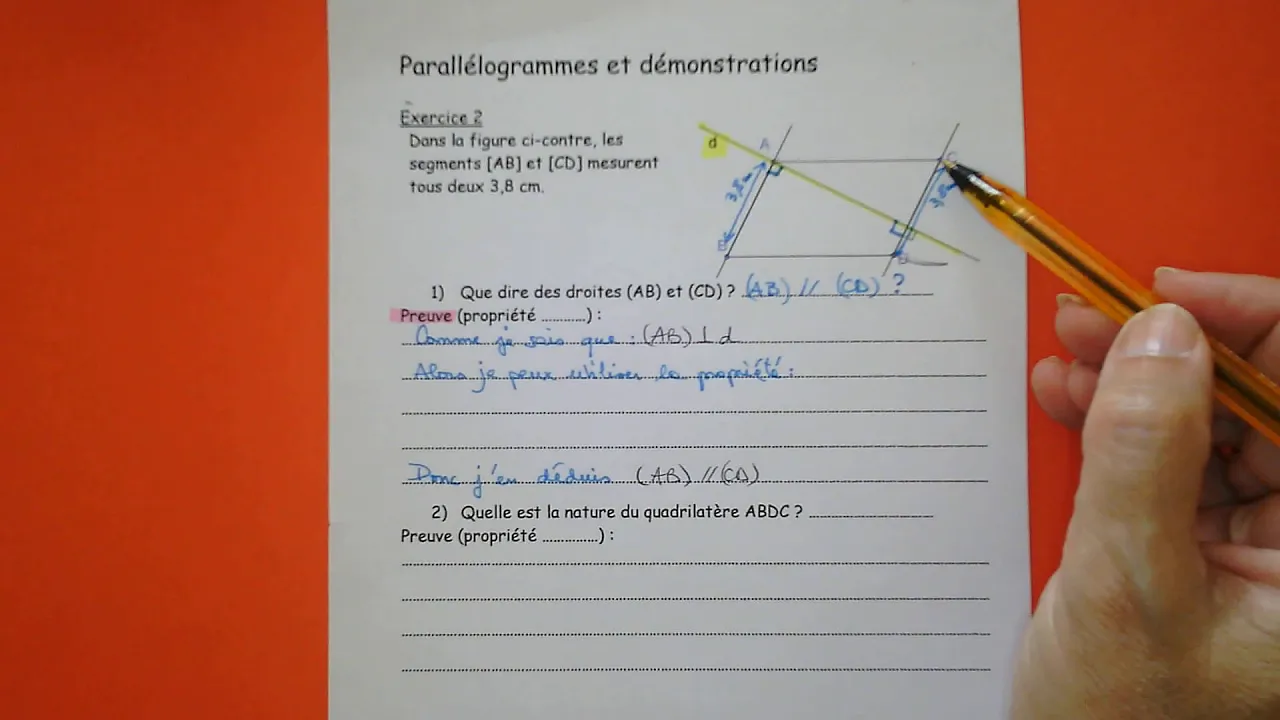 Parallélogrammes et démonstrations
Exercice 2
Dans la figure ci-contre, les
segments [AB] et [CD] mesurent
tous deux 3,8 cm.
d
A
C
3,8
3,8
B
D
1) Que dire des droites (AB) et (CD) ? (AB) // (CD) ?
Preuve (propriété ...........) :
Comme je sais que : (AB) ⊥ d
Alors je peux utiliser la propriété :
Donc j'en déduis (AB) // (CD)
2) Quelle est la nature du quadrilatère ABDC ? ..............................
Preuve (propriété ..............) :